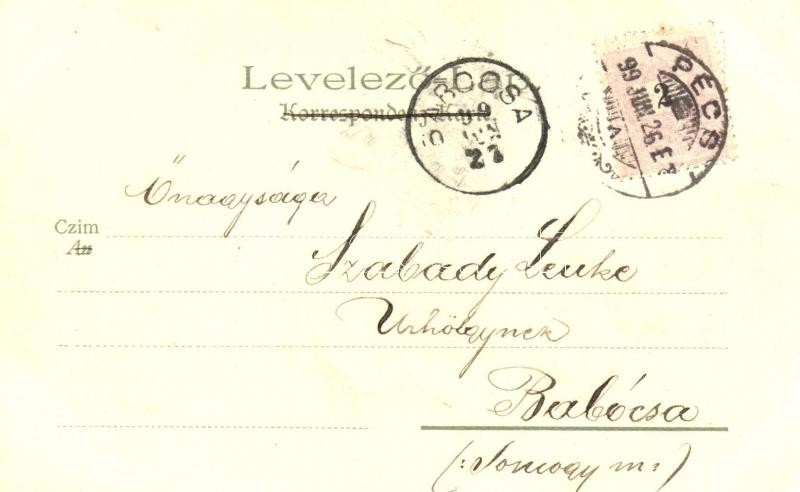 Levelező-Lap.
Korrespondenz-Karte
BABOCSA
99 JUN 27
PÉCS
99 JUN 26 E
2
Őnagysága
Czim
An
Szabady Lenke
Urhölgynek
Babócsa
(: Somogy m :)